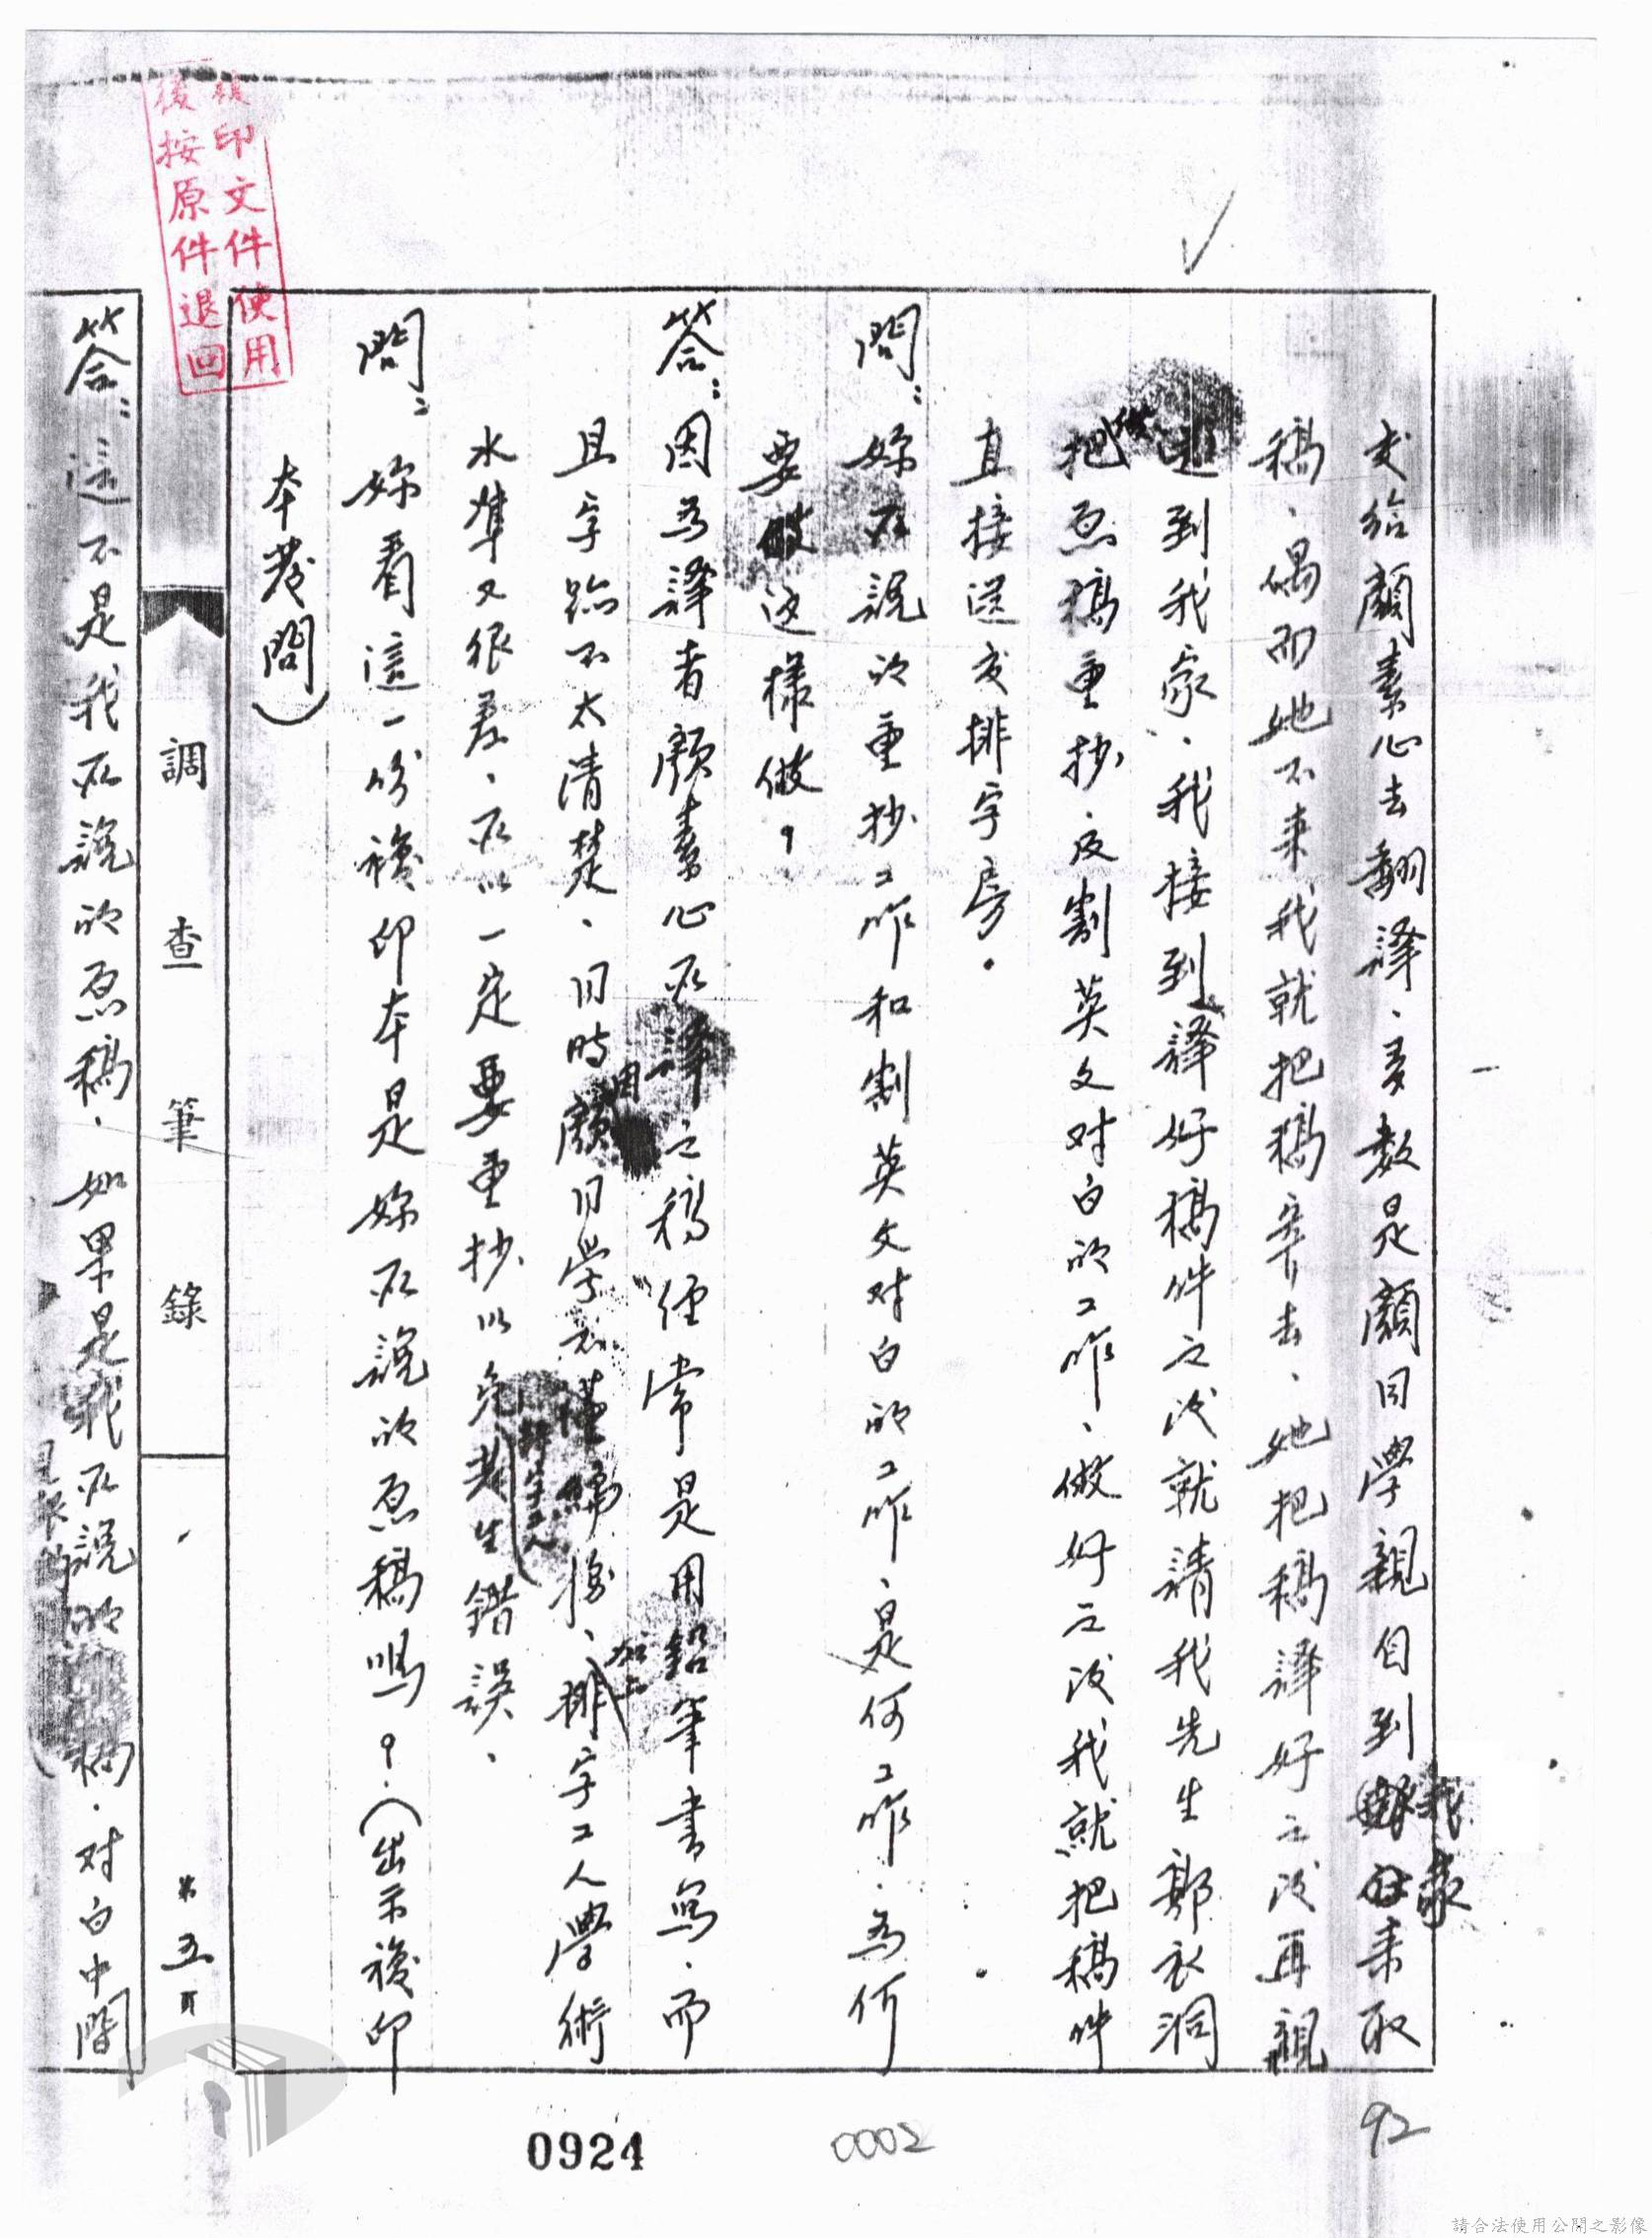 交給顏素心去翻譯、多數是顏同學親自到我家來取
稿、偶而她不來我就把稿寄去、她把稿譯好之后再親
送到我家、我接到譯好稿件之后就請我先生鄭衣洞
把原稿重抄、及割英文对白的工作、做好之后我就把稿件
直接送交排字房。
問：妳所說的重抄工作和割英文对白的工作、是何工作、為何
要這樣做？
答：因為譯者顏素心所譯之稿經常是用鉛筆書寫、而
且字跡不太清楚、同時因顏同學  後、加上排字工人學術
水準又很差、所以一定要重抄以免排字工人發生錯誤、
問：妳看這一份複印本是妳所說的原稿嗎？（出示複印
本發問）
調查筆錄
第五頁
答：這不是我所說的原稿、如果是我所說的 稿、对白中間
複印文件使用
後按原件退回
0924
0002
92
請合法使用公開之影像